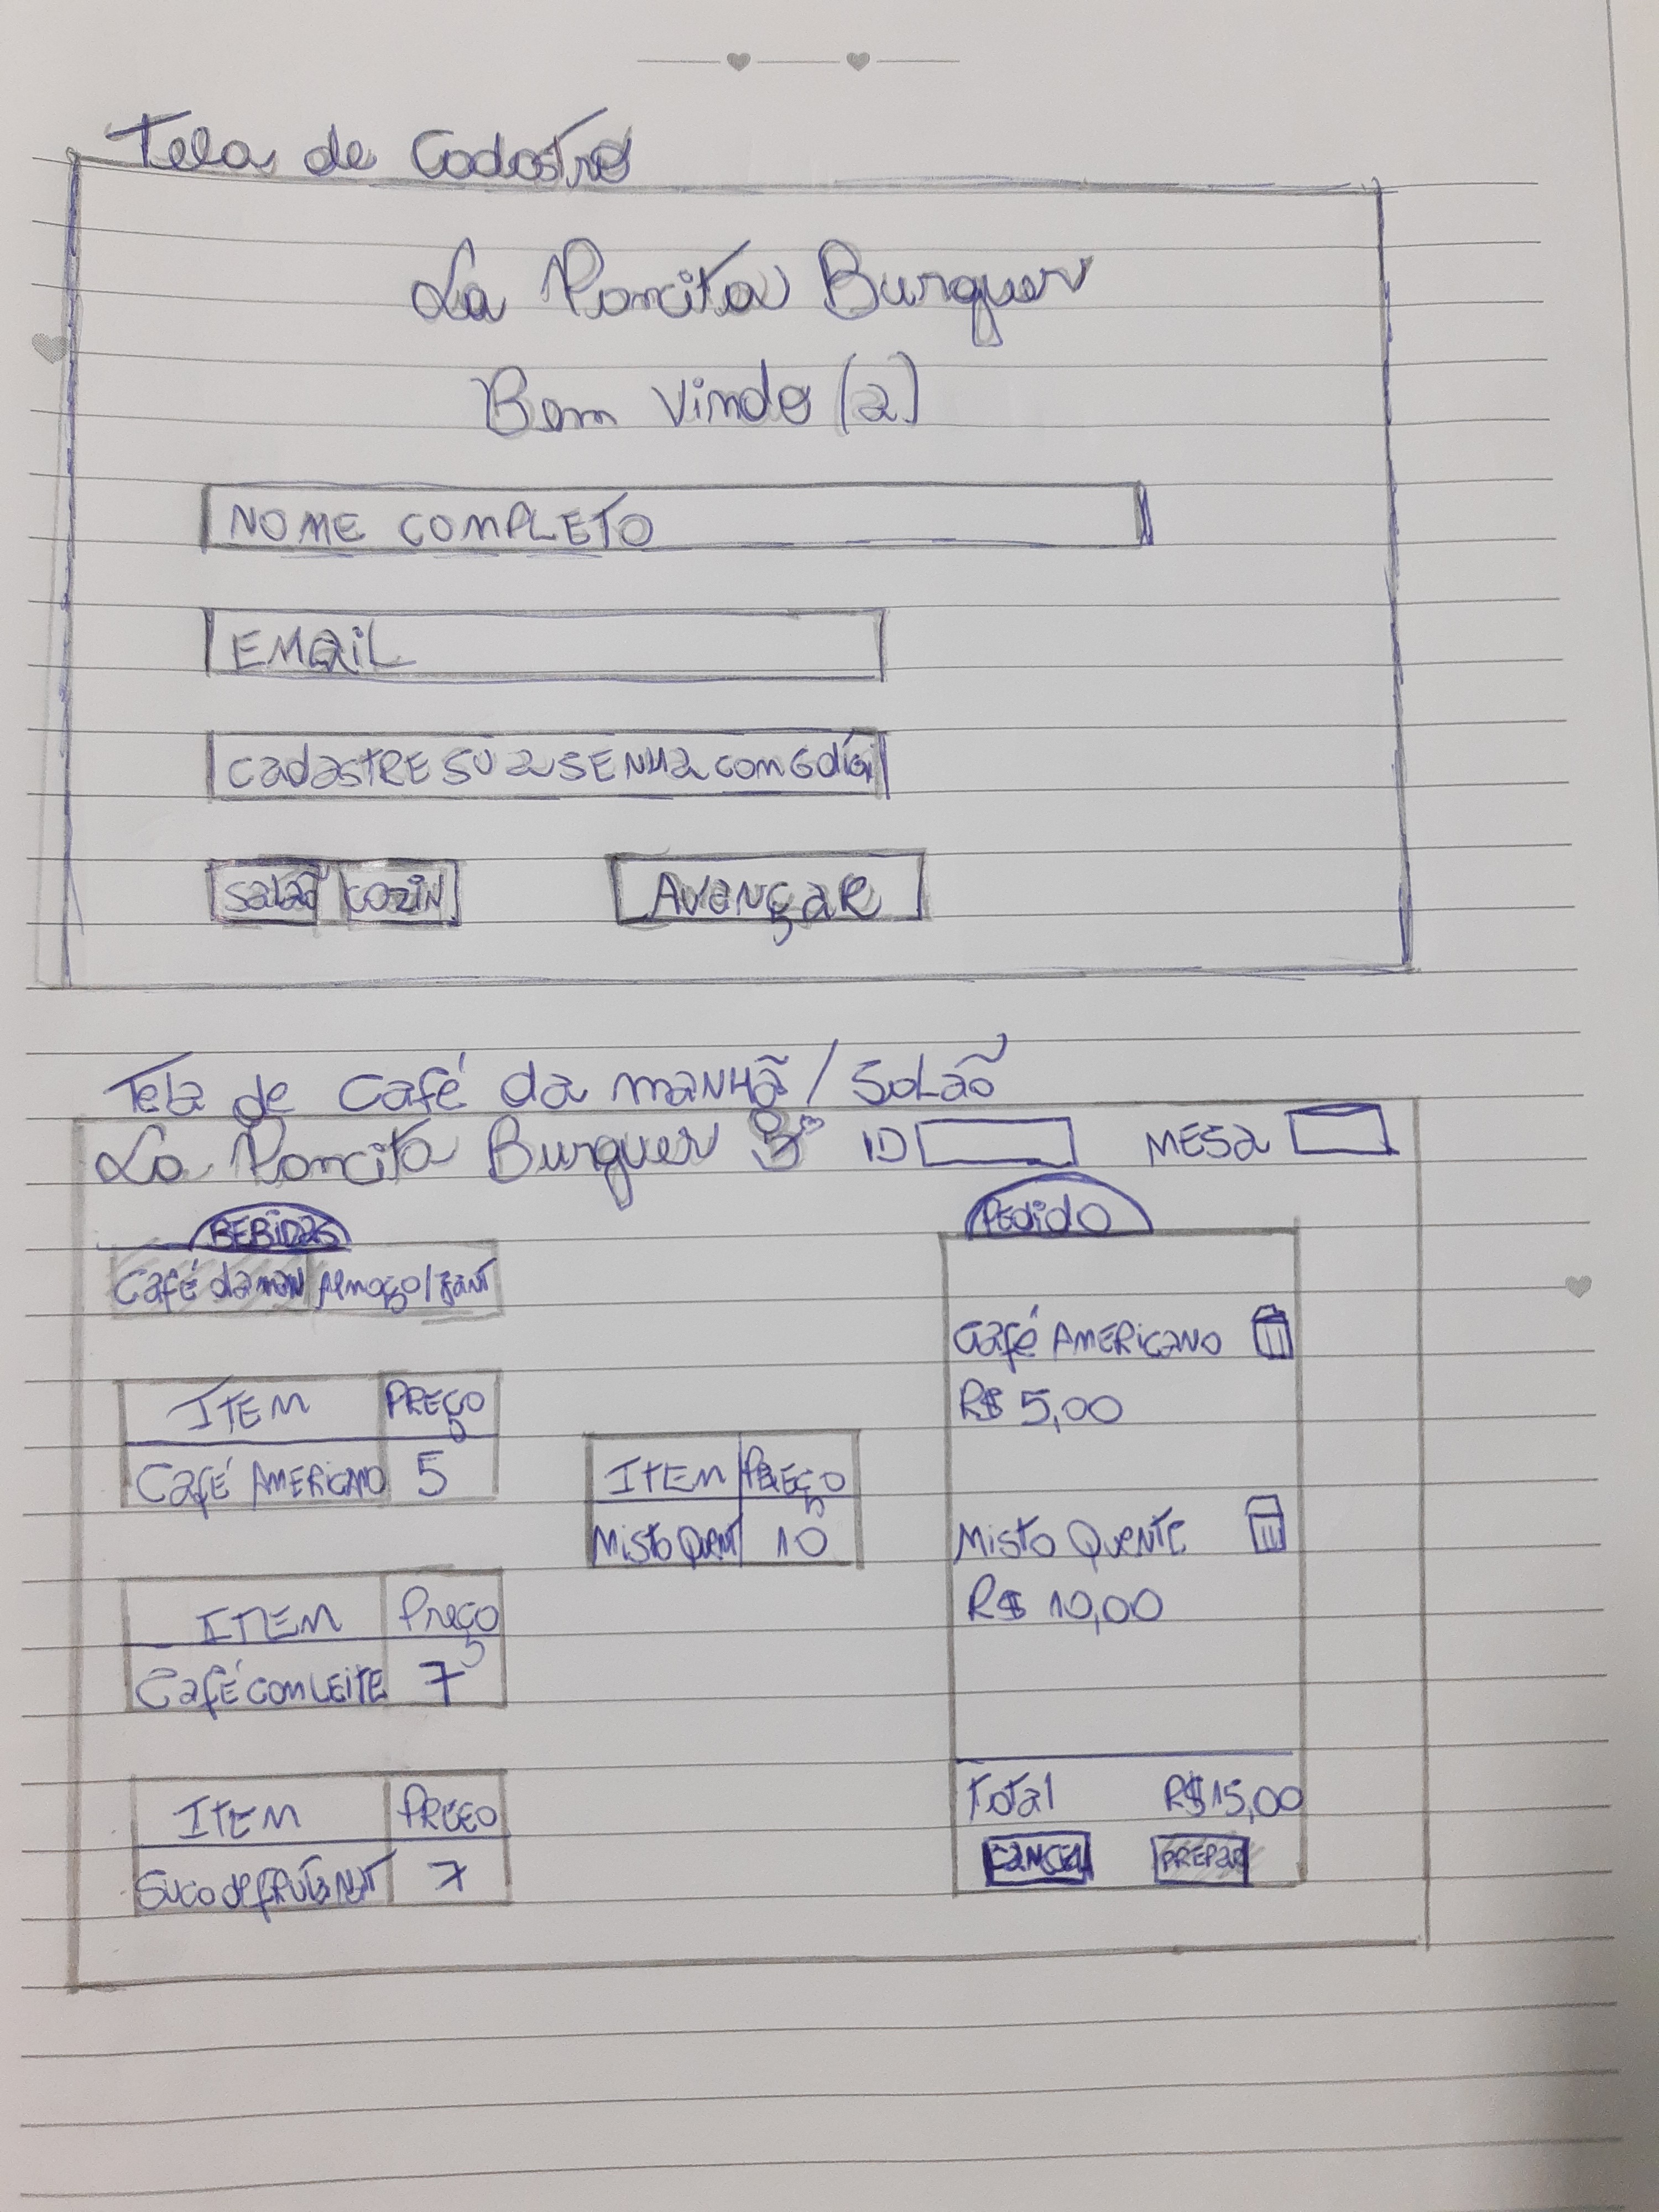 Tela de Cadastro
La Poncita Burguer
Bem Vindo (a)
NOME COMPLETO
EMAIL
CADASTRE SUA SENHA COM 6 dígi
Salão COZIN
AVANÇAR
Tela de Café da manhã / Salão
La Poncita Burguer ID MESA
BEBIDAS
Café da man Almoço/Jant
ITEM PREÇO
Café AMERICANO 5
ITEM PREÇO
Misto Quent 10
ITEM Preço
Café COM LEITE 7
ITEM PREÇO
Suco de fruta Nat 7
Pedido
Café AMERICANO
R$ 5,00
Misto Quente
R$ 10,00
Total R$ 15,00
CANCEL PREPAR